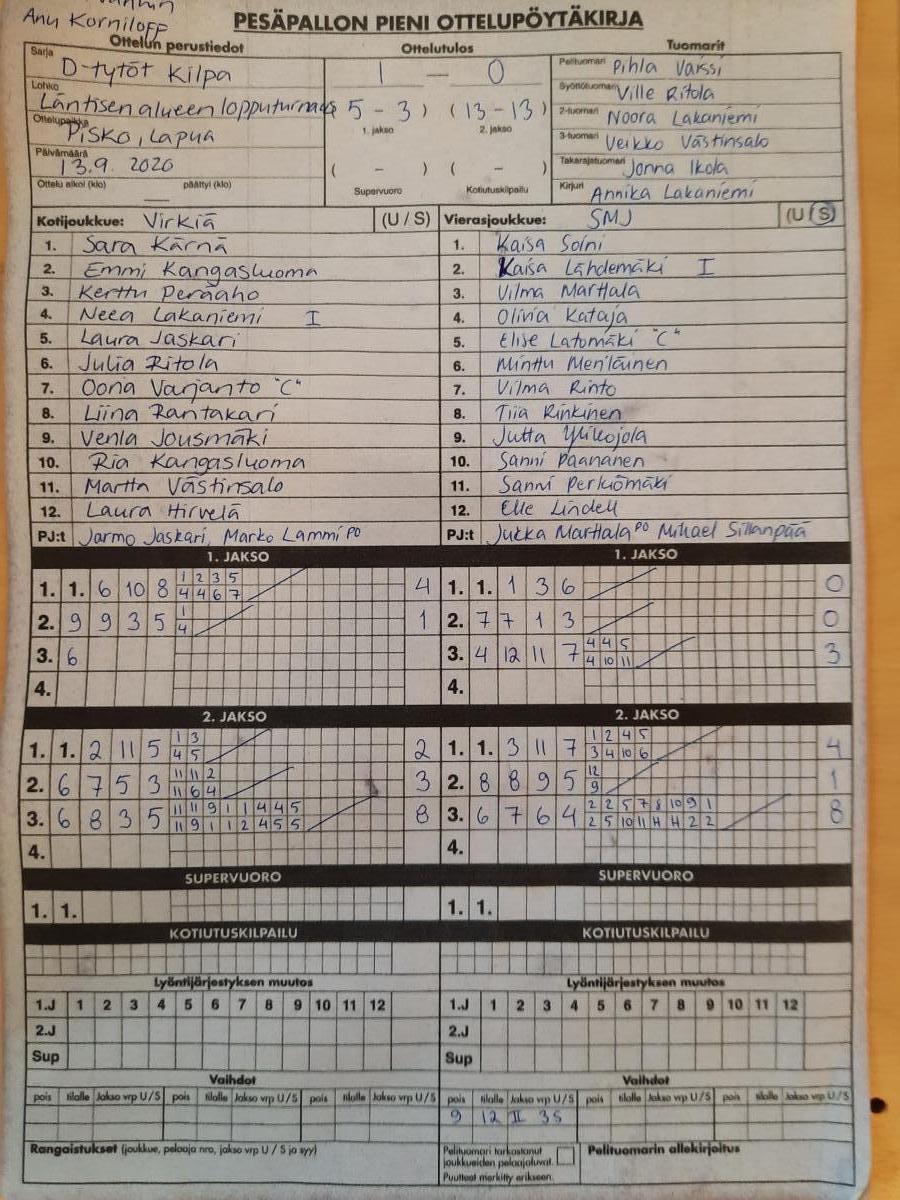 Anu Korniloff
PESÄPALLON PIENI OTTELUPÖYTÄKIRJA
Ottelun perustiedot Ottelutulos Tuomarit
Sarja D-tytöt Kilpa 1 — 0 Pelituomari Pihla Varssi
Lohko Läntisen alueen lopputurnaus 5 - 3 ) ( 13 - 13 ) Syöttötuomari Ville Ritola
1. jakso 2. jakso 2-tuomari Noora Lakaniemi
Ottelupaikka Pisko, Lapua 3-tuomari Veikko Västinsalo
Päivämäärä 13.9. 2020 ( - ) ( - ) Takarajatuomari Jonna Ikola
Ottelu alkoi (klo) — päättyi (klo) Supervuoro Kotiutuskilpailu Kirjuri Annika Lakaniemi
Kotijoukkue: Virkiä (U / S) Vierasjoukkue: SMJ (U / S)
1. Sara Kärnä 1. Kaisa Soini
2. Emmi Kangasluoma 2. Kaisa Lähdemäki I
3. Kerttu Peräaho 3. Vilma Marttala
4. Neea Lakaniemi I 4. Olivia Kataja
5. Laura Jaskari 5. Elise Latomäki "C"
6. Julia Ritola 6. Minttu Meriläinen
7. Oona Varjanto "C" 7. Vilma Rinto
8. Liina Rantakari 8. Tiia Rinkinen
9. Venla Jousmäki 9. Jutta Ylikojola
10. Ria Kangasluoma 10. Sanni Paananen
11. Martta Västinsalo 11. Sanni Perkiömäki
12. Laura Hirvelä 12. Elle Lindell
PJ:t Jarmo Jaskari, Marko Lammi PO PJ:t Jukka Marttala PO Mikael Sillanpää
1. JAKSO 1. JAKSO
1. 1. 6 10 8 1 2 3 5 4 1. 1. 1 3 6 0
4 4 6 7
2. 9 9 3 5 1 1 2. 7 7 1 3 0
4
3. 6 3. 4 12 11 7 4 4 5 3
4 10 11
4. 4.
2. JAKSO 2. JAKSO
1. 1. 2 11 5 1 3 2 1. 1. 3 11 7 1 2 4 5 4
4 5 3 4 10 6
2. 6 7 5 3 11 11 2 3 2. 8 8 9 5 12 1
11 6 4 9
3. 6 8 3 5 11 11 9 1 1 4 4 5 8 3. 6 7 6 4 2 2 5 7 8 10 9 1 8
11 9 1 1 2 4 5 5 2 5 10 11 H H 2 2
4. 4.
SUPERVUORO SUPERVUORO
1. 1. 1. 1.
KOTIUTUSKILPAILU KOTIUTUSKILPAILU
Lyöntijärjestyksen muutos Lyöntijärjestyksen muutos
1.J 1 2 3 4 5 6 7 8 9 10 11 12 1.J 1 2 3 4 5 6 7 8 9 10 11 12
2.J 2.J
Sup Sup
Vaihdot Vaihdot
pois tilalle Jakso vrp U/S pois tilalle Jakso vrp U/S pois tilalle Jakso vrp U/S pois tilalle Jakso vrp U/S pois tilalle Jakso vrp U/S pois tilalle Jakso vrp U/S
9 12 II 3S
Rangaistukset (joukkue, pelaaja nro, jakso vrp U / S ja syy) Pelituomari tarkastanut Pelituomarin allekirjoitus
joukkueiden pelaajaluvat.
Puutteet merkitty erikseen.